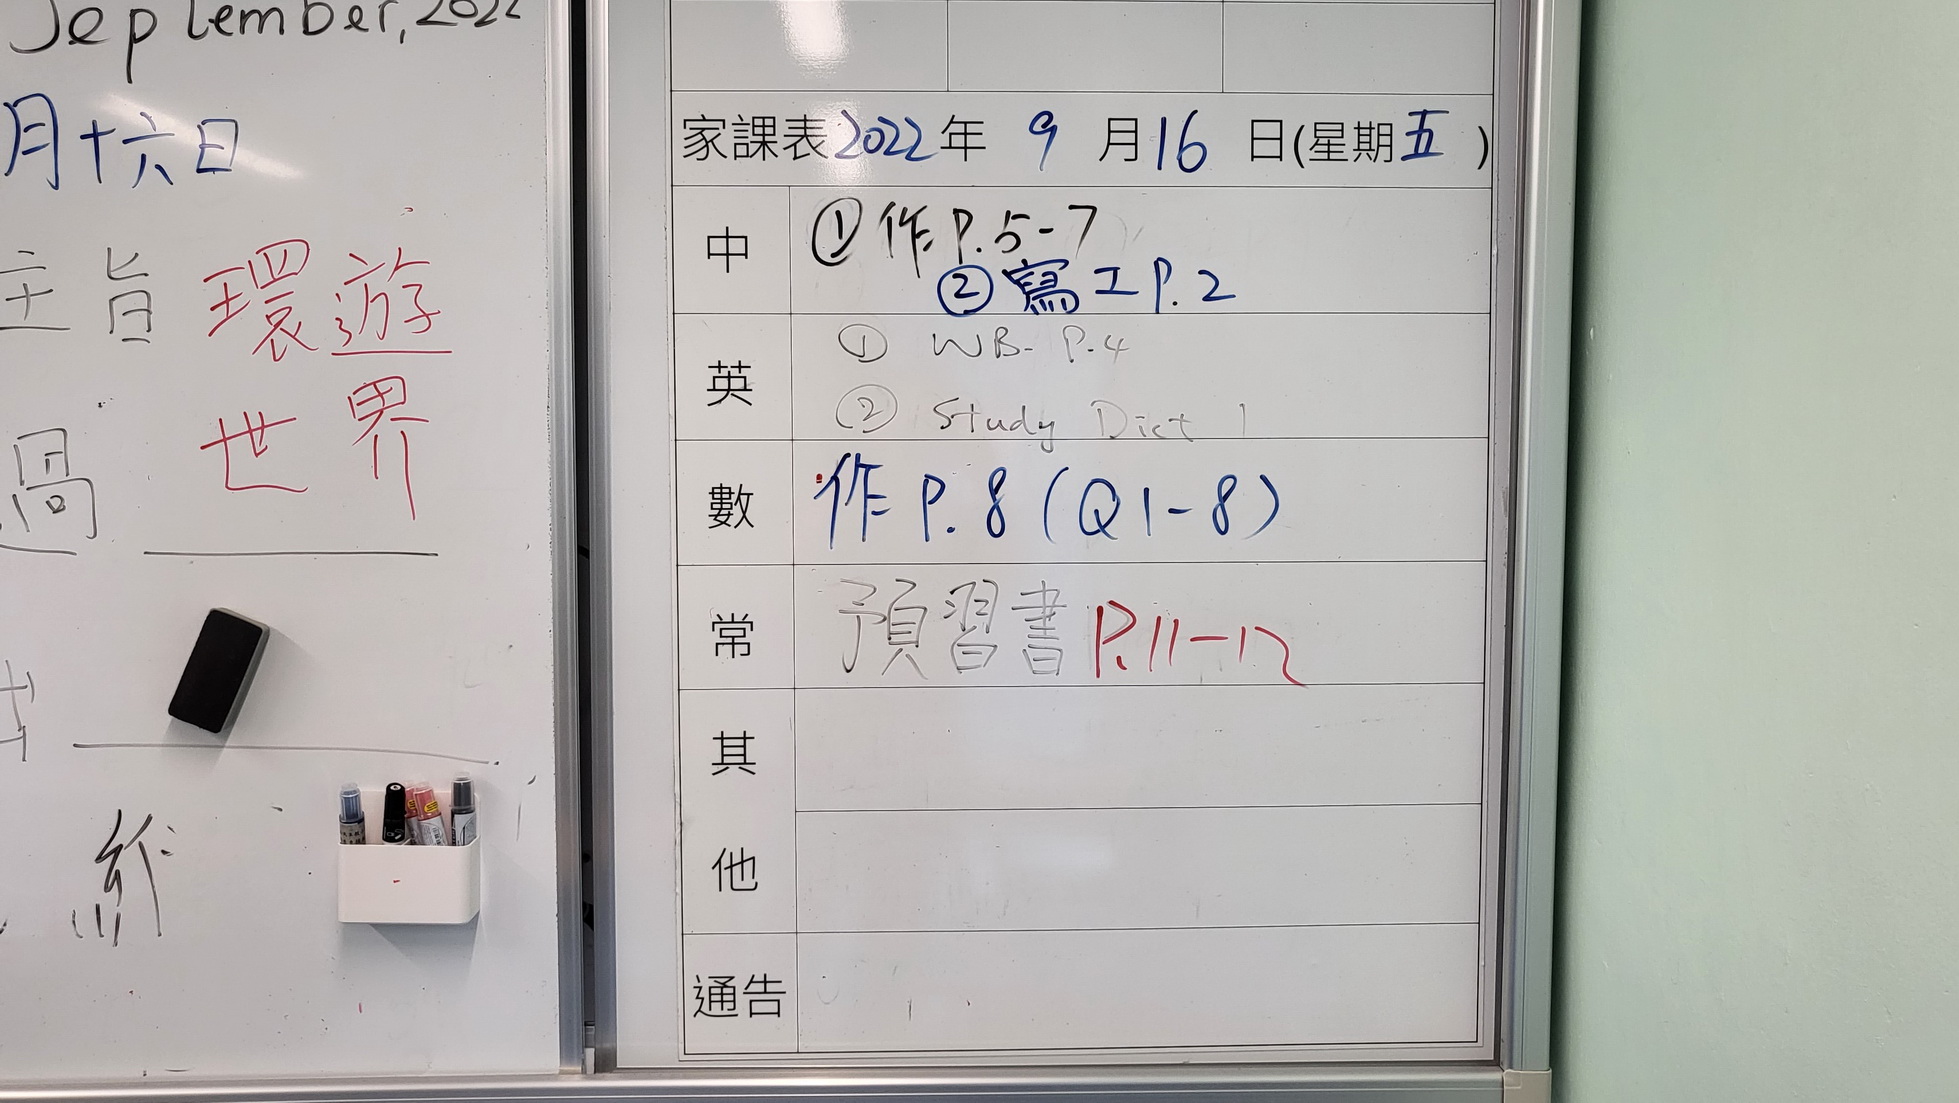 September, 2022
月十六日
主旨 環遊
世界
過
家課表2022年 9 月16 日(星期五)
中
①作P.5-7
②寫工P.2
英
① WB. P.4
② Study Dict 1
數
作P.8(Q1-8)
常
預習書P.11-12
其
他
通告